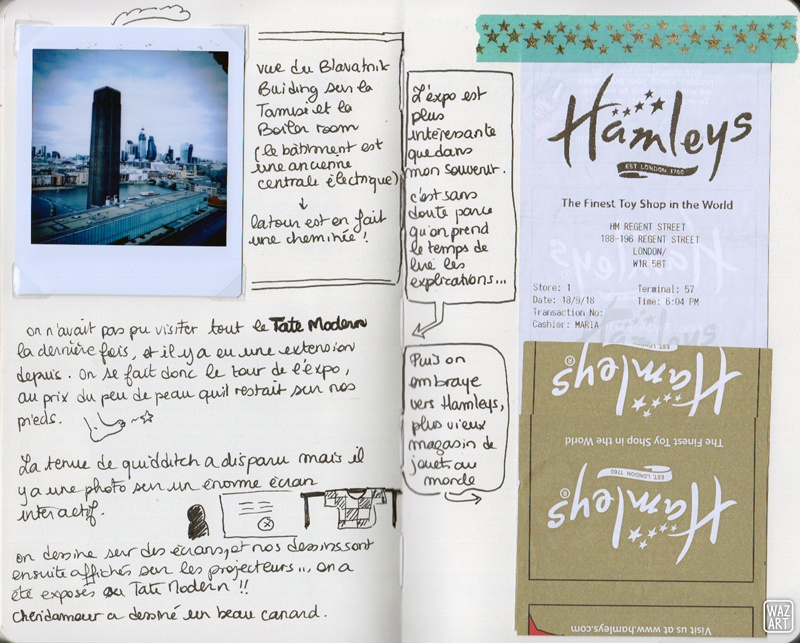 vue du Blavatnik
Buiding sur la
Tamise et la
Boiler room
(le bâtiment est
une ancienne
centrale électrique)
↓
la tour est en fait
une cheminée !
on n'avait pas pu visiter tout le Tate Modern
la dernière fois, et il y a eu une extension
depuis. On se fait donc le tour de l'expo,
au prix du peu de peau qu'il restait sur nos
pieds.
La tenue de quidditch a disparu mais il
y a une photo sur un énorme écran
interactif.
on dessine sur des écrans, et nos dessins sont
ensuite affichés sur les projecteurs... on a
été exposés au Tate Modern !!
Chéridamour a dessiné un beau canard.
L'expo est
plus
intéressante
que dans
mon souvenir.
c'est sans
doute parce
qu'on prend
le temps de
lire les
explications...
Puis on
embraye
vers Hamleys,
plus vieux
magasin de
jouet au
monde
Hamleys
EST LONDON 1760
The Finest Toy Shop in the World
HM REGENT STREET
188-196 REGENT STREET
LONDON/
W1R 5BT
Store: 1 Terminal: 57
Date: 18/9/18 Time: 6:04 PM
Transaction No:
Cashier: MARIA
Hamleys®
The Finest Toy Shop in the World
EST. LONDON 1760
Hamleys®
Visit us at www.hamleys.com
WAZ
ART